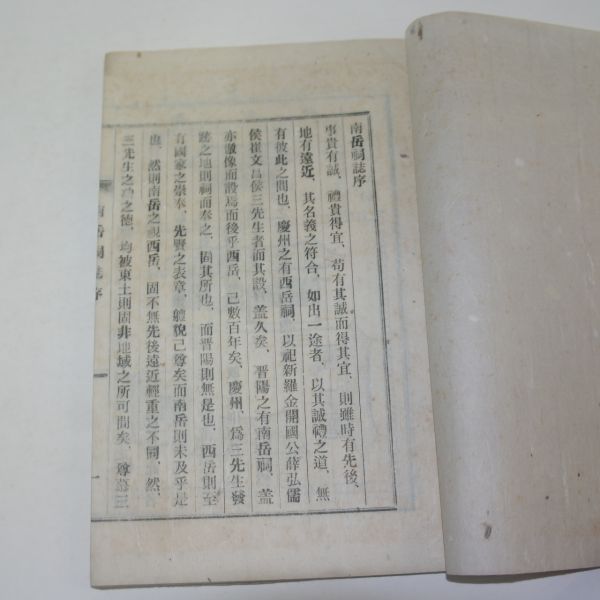 南岳祠誌序
事貴有誠、禮貴得宜、苟有其誠而得其宜、則雖時有先後、
地有遠近、其名義之符合、如出一途者、以其誠禮之道、無
有彼此之間也、慶州之有西岳祠、以祀新羅金開國公薛弘儒
侯崔文昌侯三先生者而其設、盖久矣、晋陽之有南岳祠、盖
亦倣像而設焉而後乎西岳、已數百年矣、慶州、爲三先生發
跡之地則祠而奉之、固其所也、而晋陽則無是也、西岳則至
有國家之崇奉、先賢之表章、軆貌已尊矣而南岳則未及乎是
也、然則南岳之視西岳、固不無先後遠近輕重之不同、然、
三先生之功之德、均被東土則固非地域之所可間矣、尊慕三
南岳祠誌序
一